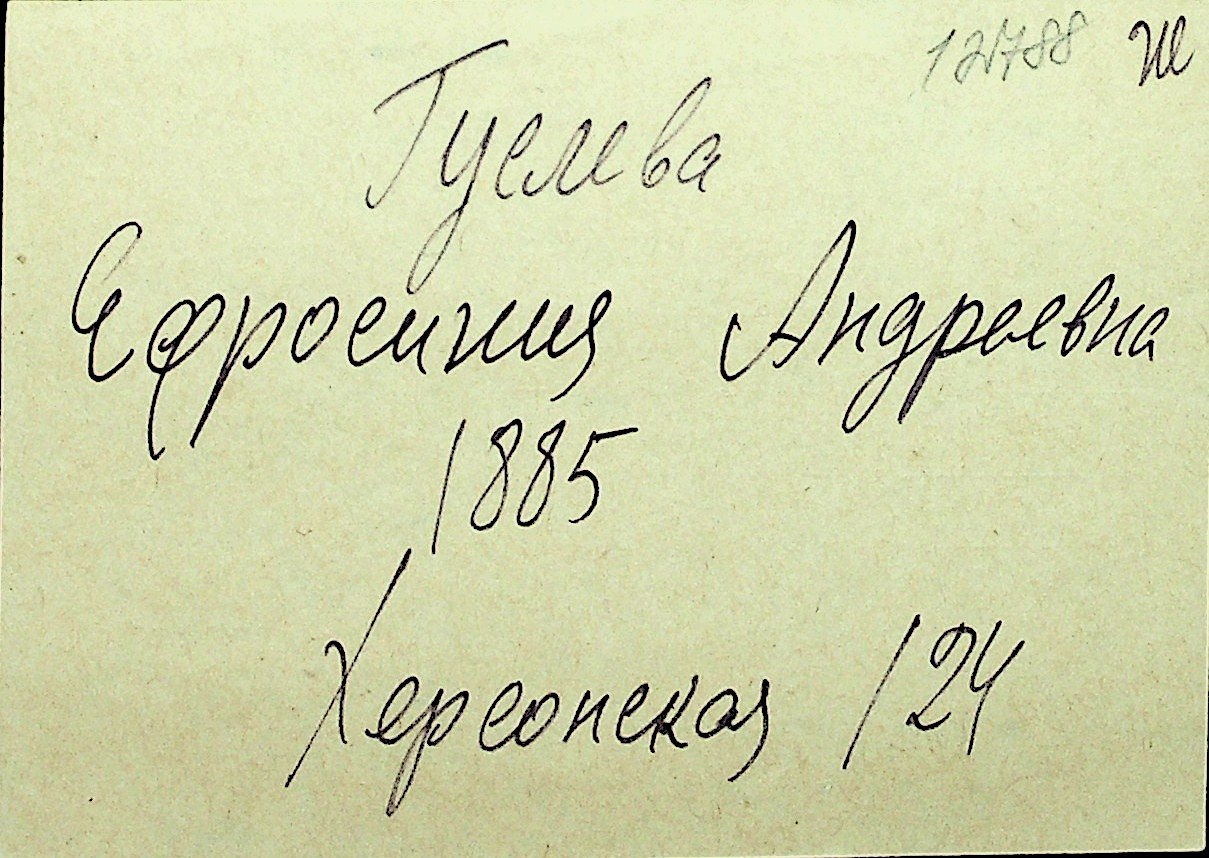 12788 Ж
Гуслева
Ефросиния Андреевна
1885
Херсонская 124